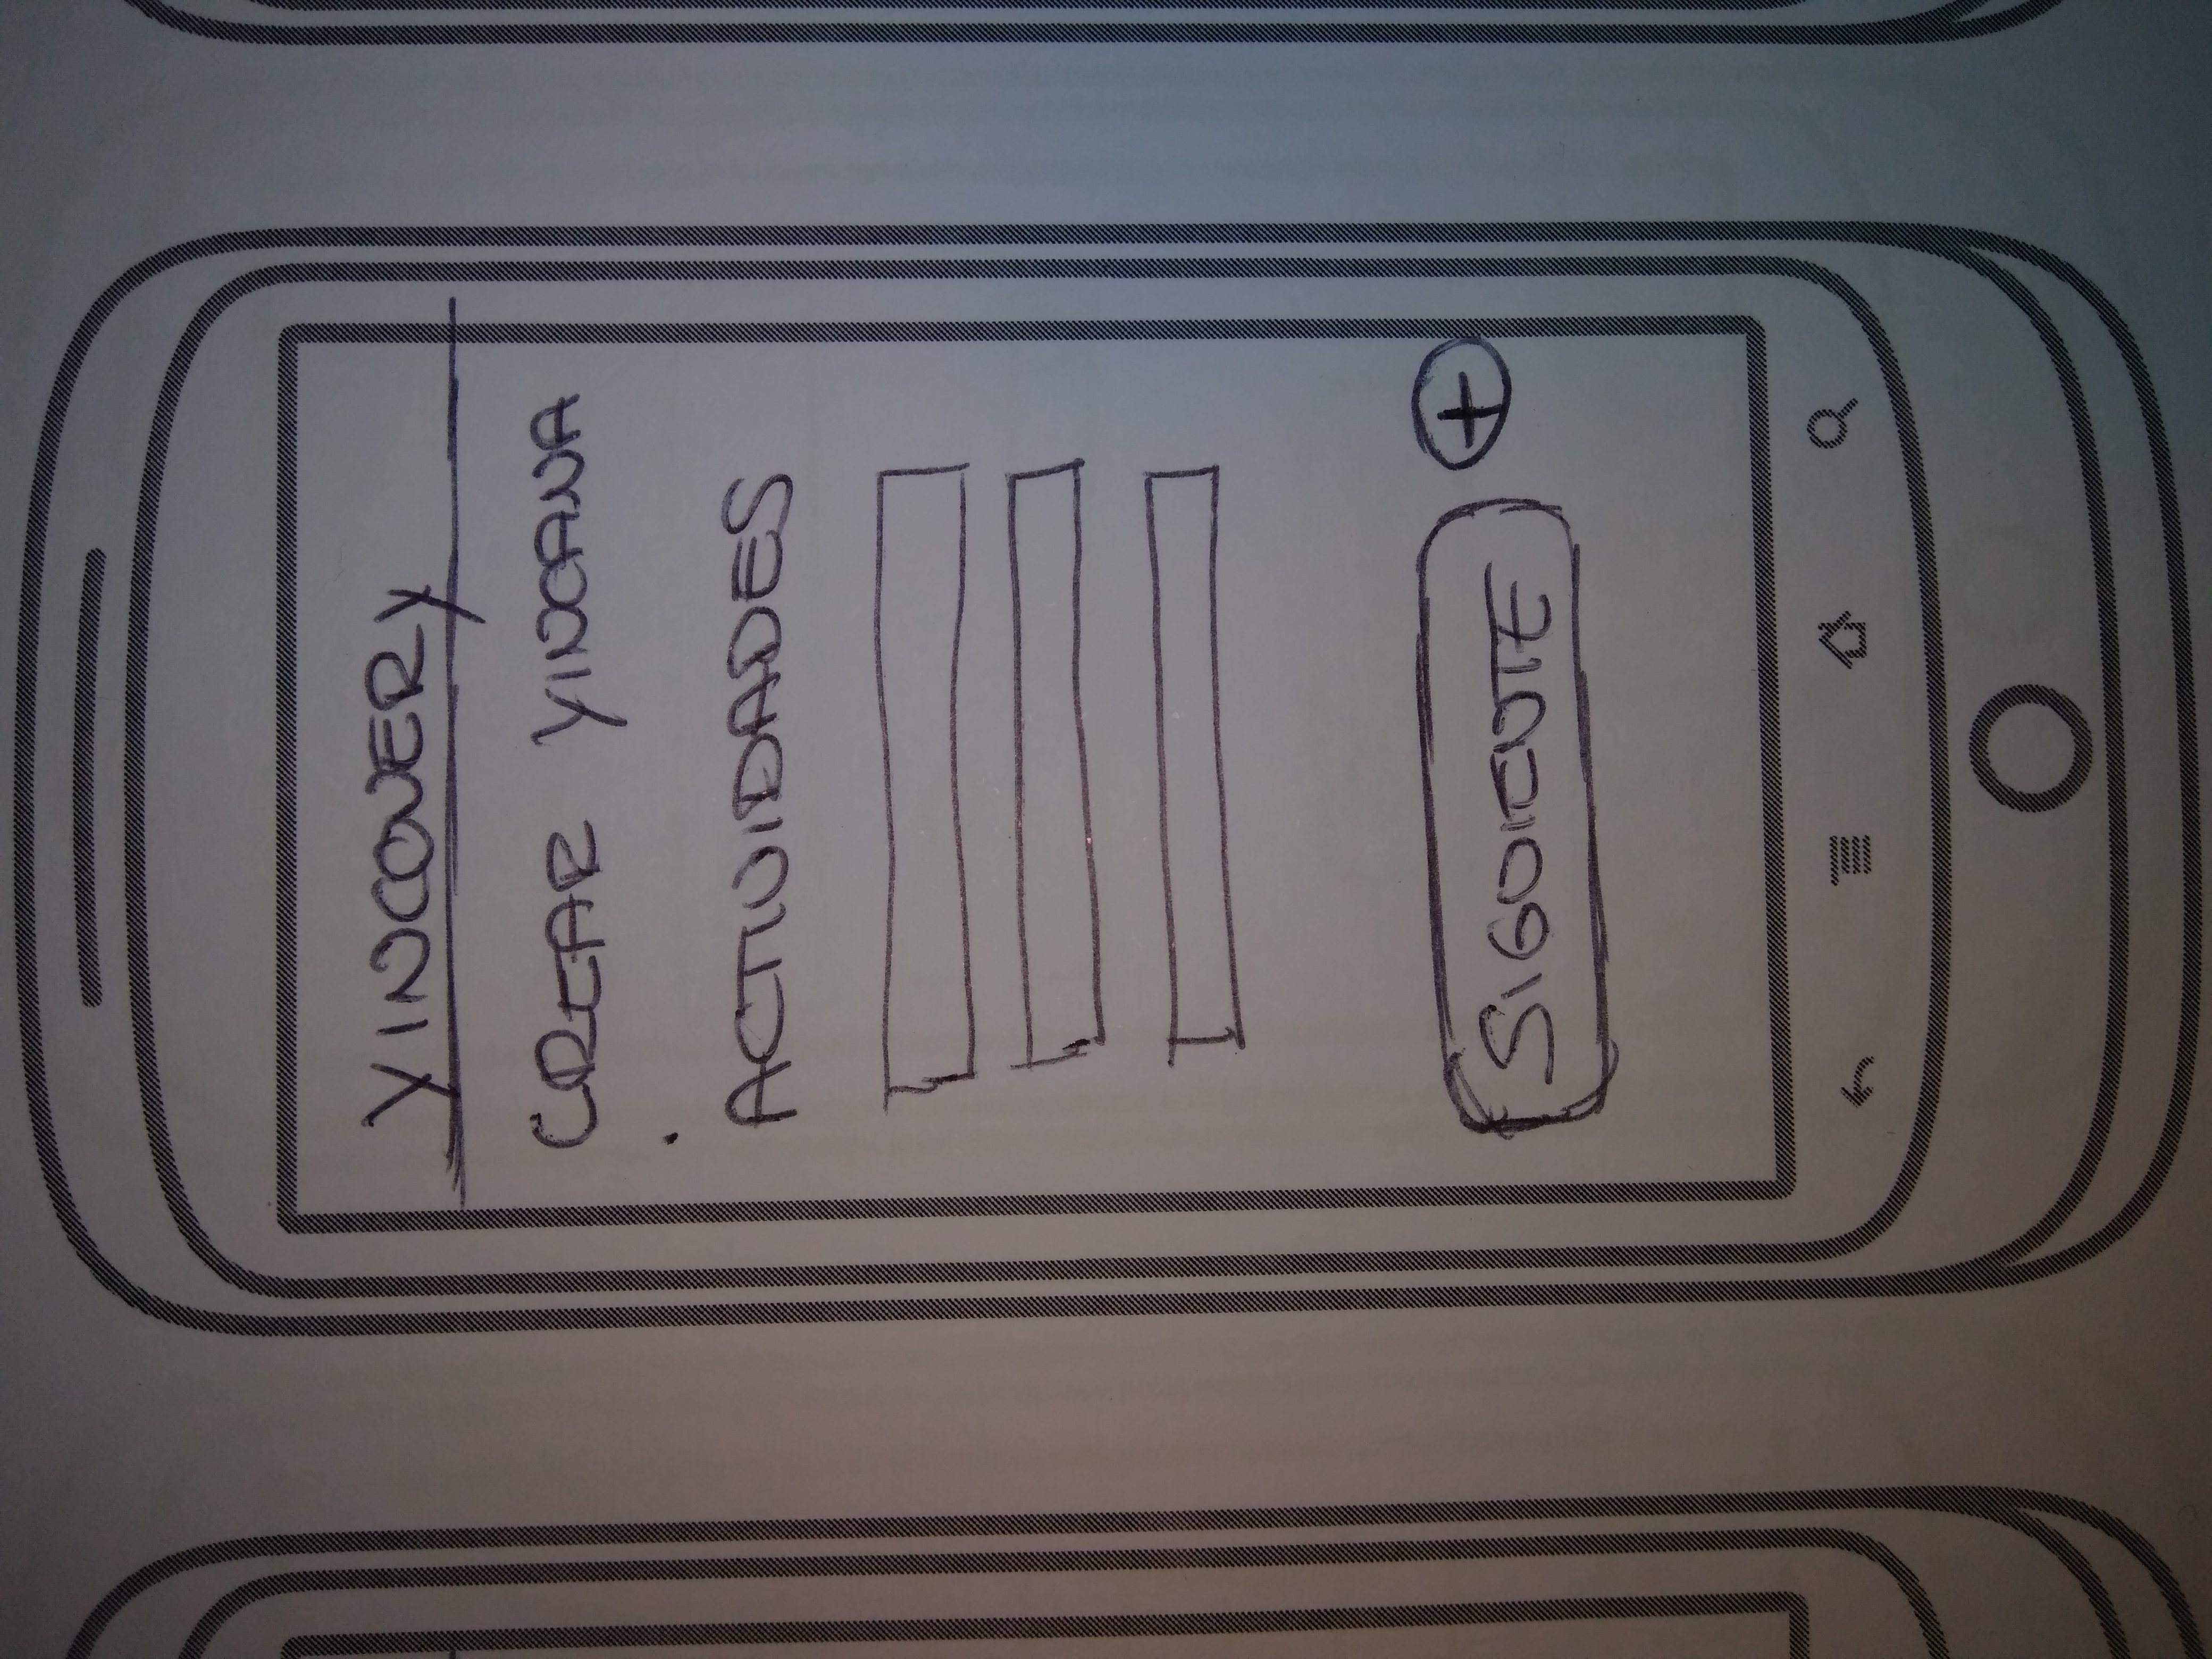 YINCOVERY
CREAR YINCANA
ACTIVIDADES
SIGUIENTE
+